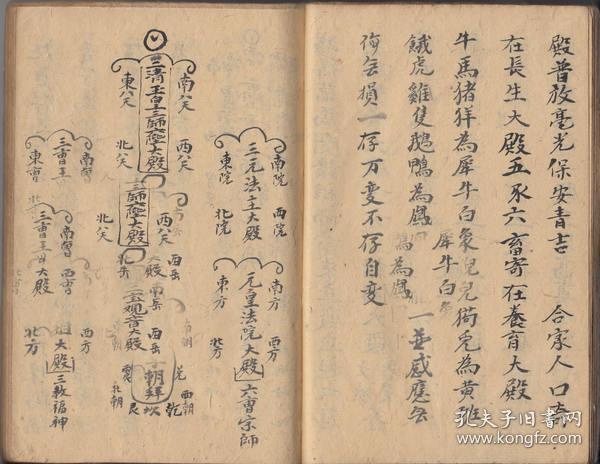 殿普放毫光保安青吉 合家人口寄
在長生大殿五永六畜寄在養育大殿
牛馬猪羊為犀牛白象兒兒狗兎為黄雖
犀牛白
餓虎雞隻鵝鴨為鳳 一並感應無
為為鳳
傷無損一存万变不存自变
三清玉皇三師登大殿
南八天
東八天
西八天
北天
三師登大殿
西八天
北天
三宝观音大殿
西岳
北岳
朝拜
乾
坎
艮
西朝
北朝
三元法主大殿
南院
東院
西院
北院
元皇法院大殿
南方
東方
西方
北方
六曹宗師
三曹王
南曹
東曹
三曹王母大殿
南曹
西曹
大殿
西方
北方
三教福神
孔夫子旧书网
www.kongfz.com